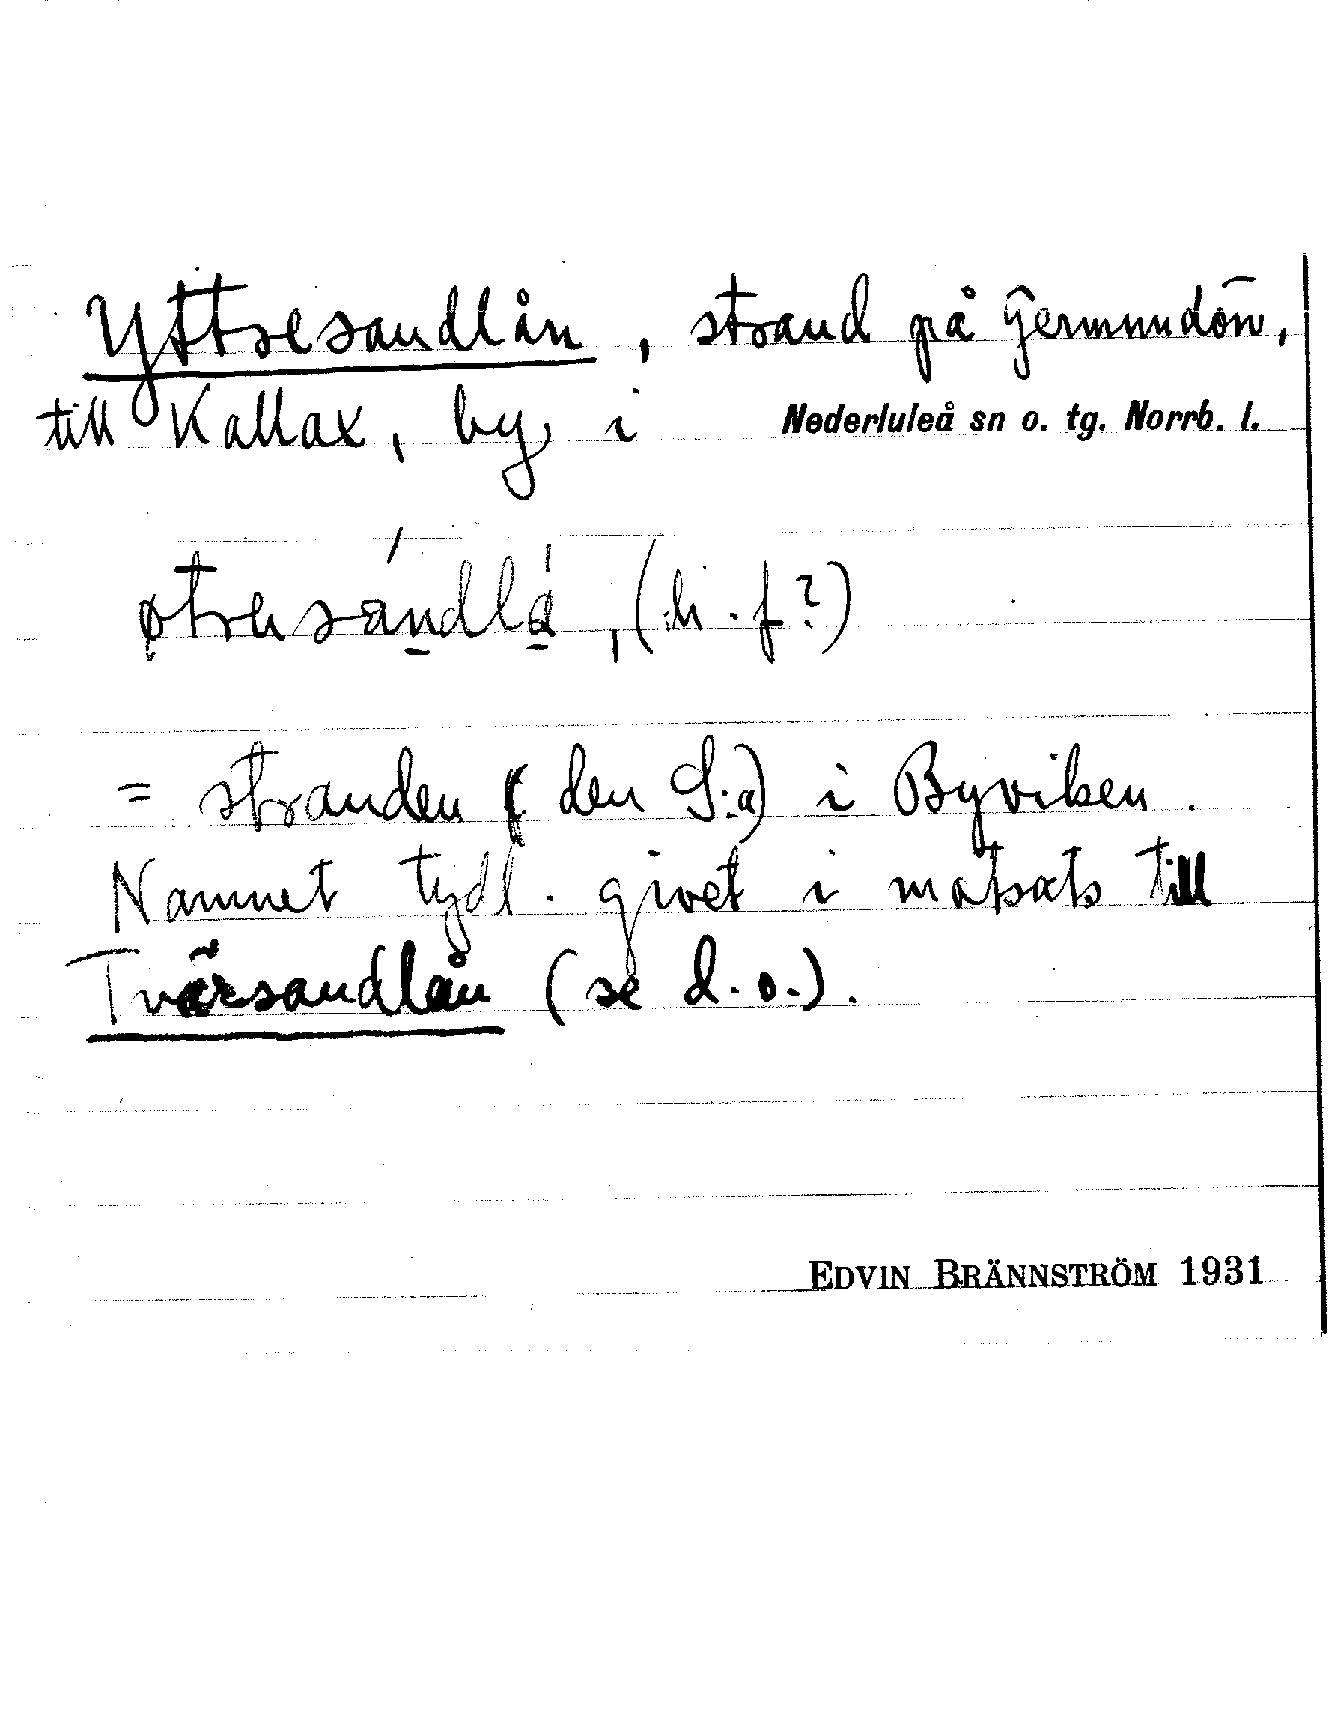 Yttresandlån, strand på Germundön,
till Kallax, by i Nederluleå sn o. tg. Norrb. l.
(b. f?)
= stranden (den S:a) i Byviken.
Namnet tydl. givet i motsats till
Tvärsandlån (se d. o.).
EDVIN BRÄNNSTRÖM 1931